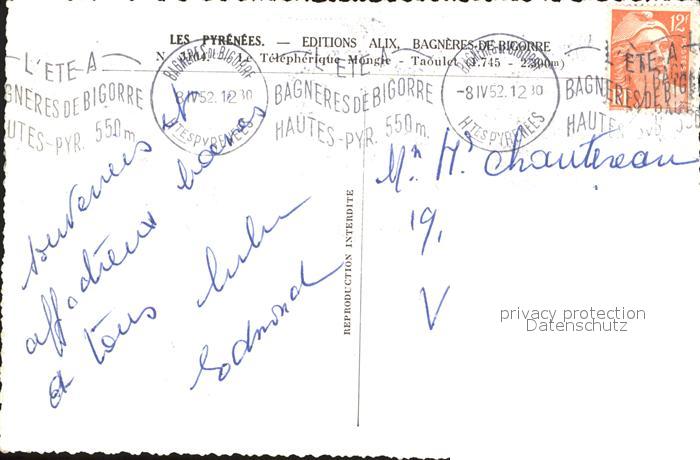 LES PYRÉNÉES. — EDITIONS ALIX, BAGNÈRES-DE-BIGORRE
Le Téléphérique Mongie - Taoulet (1.745 - 2.300m)
L'ÉTÉ-A
BAGNÈRES DE BIGORRE
HAUTES-PYR. 550m.
BAGNÈRES DE BIGORRE
-8 IV 52. 12 30
HTES PYRENEES
L'ÉTÉ-A
BAGNÈRES DE BIGORRE
HAUTES-PYR. 550m.
BAGNÈRES DE BIGORRE
-8 IV 52. 12 30
HTES PYRENEES
L'ÉTÉ-A
BAGNÈRES DE BIGORRE
HAUTES-PYR. 550
12F
Souvenirs et
affectueux baisers
a tous
Edmond
REPRODUCTION INTERDITE
Mr H. Chautereau
19,
V
privacy protection
Datenschutz